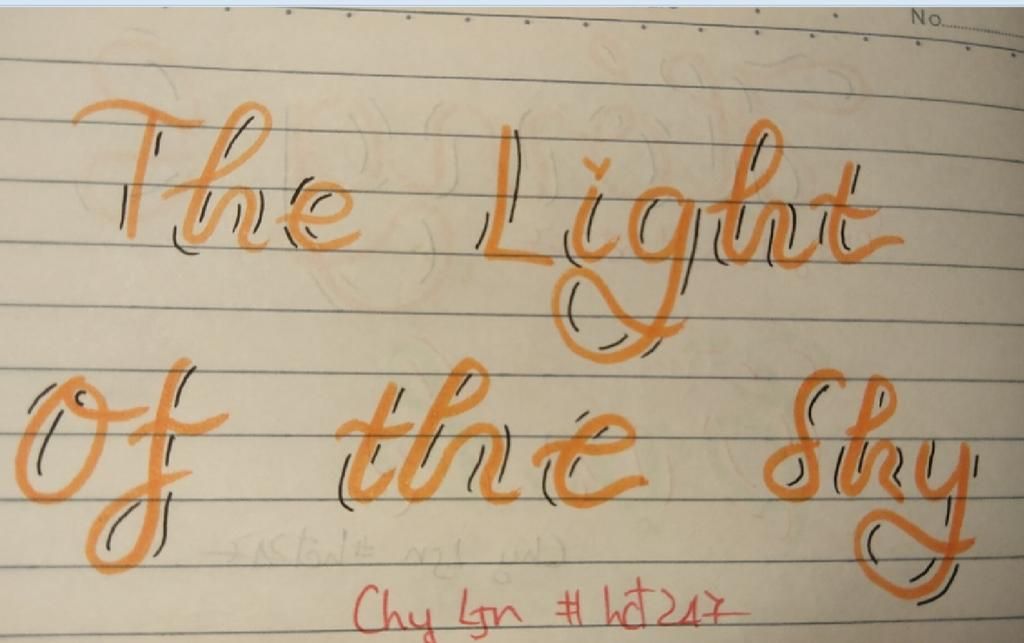 No
The Light
Of the Sky
Chy Ljn # hct247